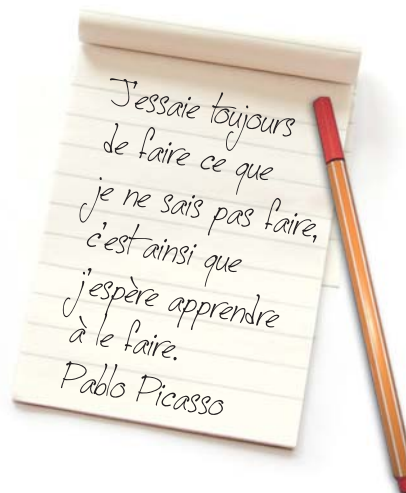 J'essaie toujours
de faire ce que
je ne sais pas faire,
c'est ainsi que
j'espère apprendre
à le faire.
Pablo Picasso